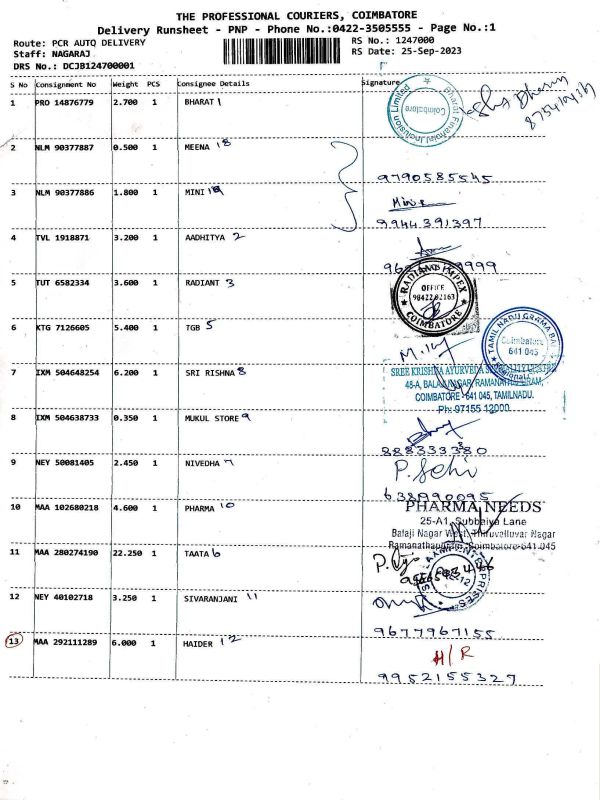 THE PROFESSIONAL COURIERS, COIMBATORE
Delivery Runsheet - PNP - Phone No.:0422-3505555 - Page No.:1
Route: PCR AUTO DELIVERY
RS No.: 1247000
Staff: NAGARAJ
RS Date: 25-Sep-2023
DRS No.: DCJB124700001
S No Consignment No Weight PCS Consignee Details Signature
1 PRO 14876779 2.700 1 BHARAT 1
Bharat Financial Inclusion Limited
Coimbatore
2 NLM 90377887 0.500 1 MEENA 18
9790585545
3 NLM 90377886 1.800 1 MINI 19
9944391397
4 TVL 1918871 3.200 1 AADHITYA 2
5 TUT 6582334 3.600 1 RADIANT 3
RADIANT IMPEX
OFFICE
98422 02163
COIMBATORE
6 KTG 7126605 5.400 1 TGB 5
TAMIL NADU GRAMA
Coimbatore
641 045
7 IXM 504648254 6.200 1 SRI RISHNA 8
SREE KRISHNA AYURVEDA
45-A, BALAJI NAGAR, RAMANATHAPURAM,
COIMBATORE - 641 045, TAMILNADU.
Ph: 97155 12000
8 IXM 504638733 0.350 1 MUKUL STORE 9
9 NEY 50081405 2.450 1 NIVEDHA 7
638990095
10 MAA 102680218 4.600 1 PHARMA 10
PHARMA NEEDS
25-A1, Subbaiya Lane
Balaji Nagar West, Thiruvalluvar Nagar
Ramanathapuram, Coimbatore-641 045
11 MAA 280274190 22.250 1 TAATA 6
12 NEY 40102718 3.250 1 SIVARANJANI 11
9677967155
13 MAA 292111289 6.000 1 HAIDER 12
H/R
9952155327